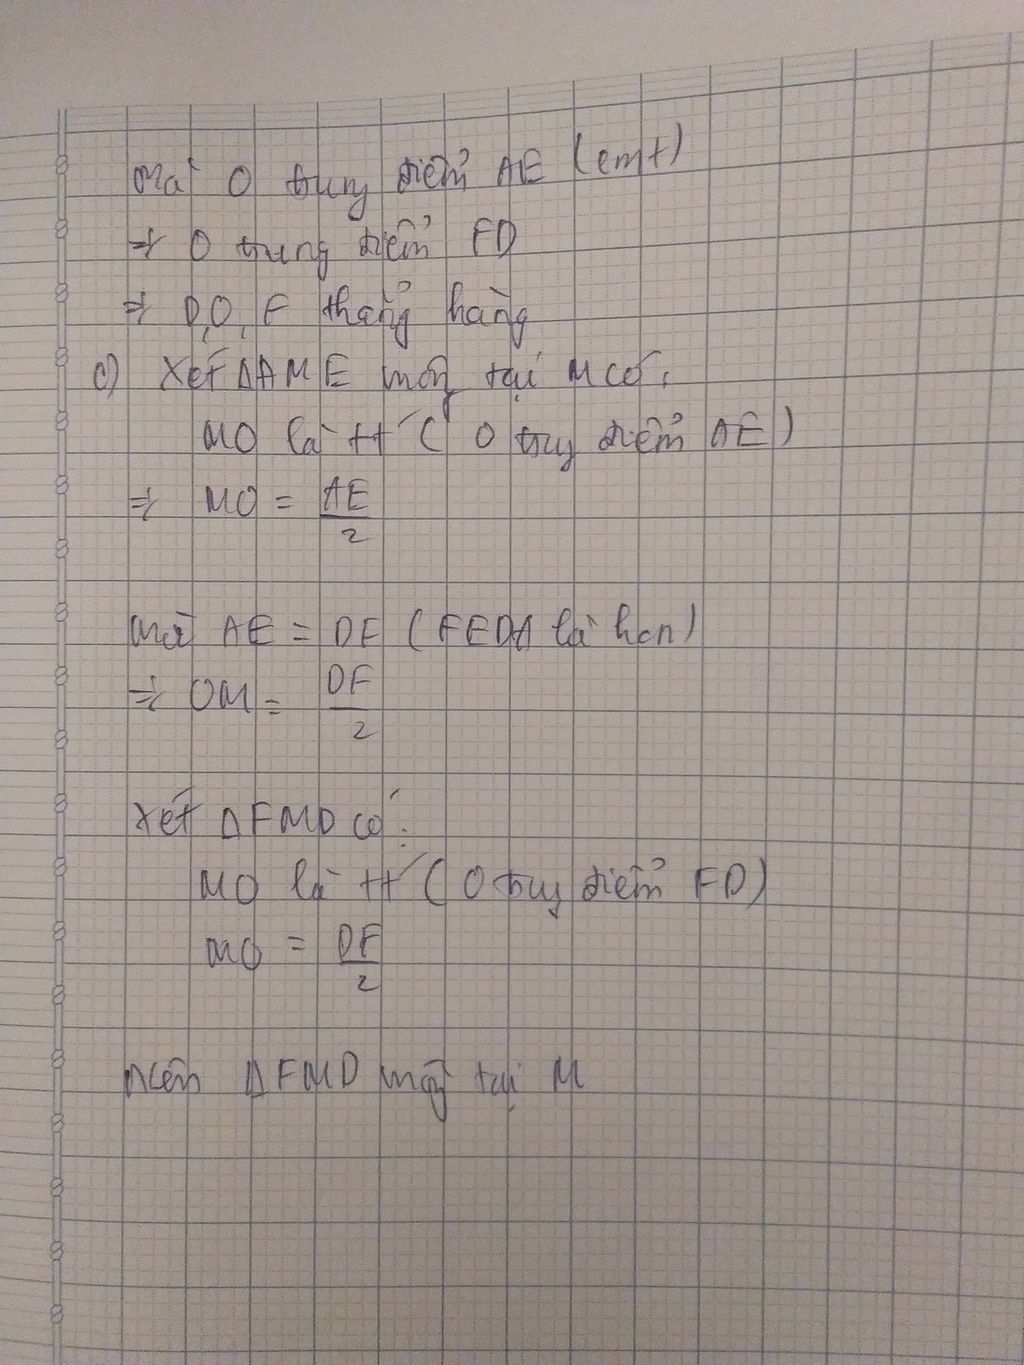 Mà O trung điểm AE (cmt)
=> O trung điểm FD
=> D, O, F thẳng hàng
c) Xét ΔAME vuông tại M có:
MO là tt (O trung điểm AE)
=> MO = AE/2
mà AE = DF (FEDA là hcn)
=> OM = DF/2
Xét ΔFMD có:
MO là tt (O trung điểm FD)
MO = DF/2
Nên ΔFMD vuông tại M